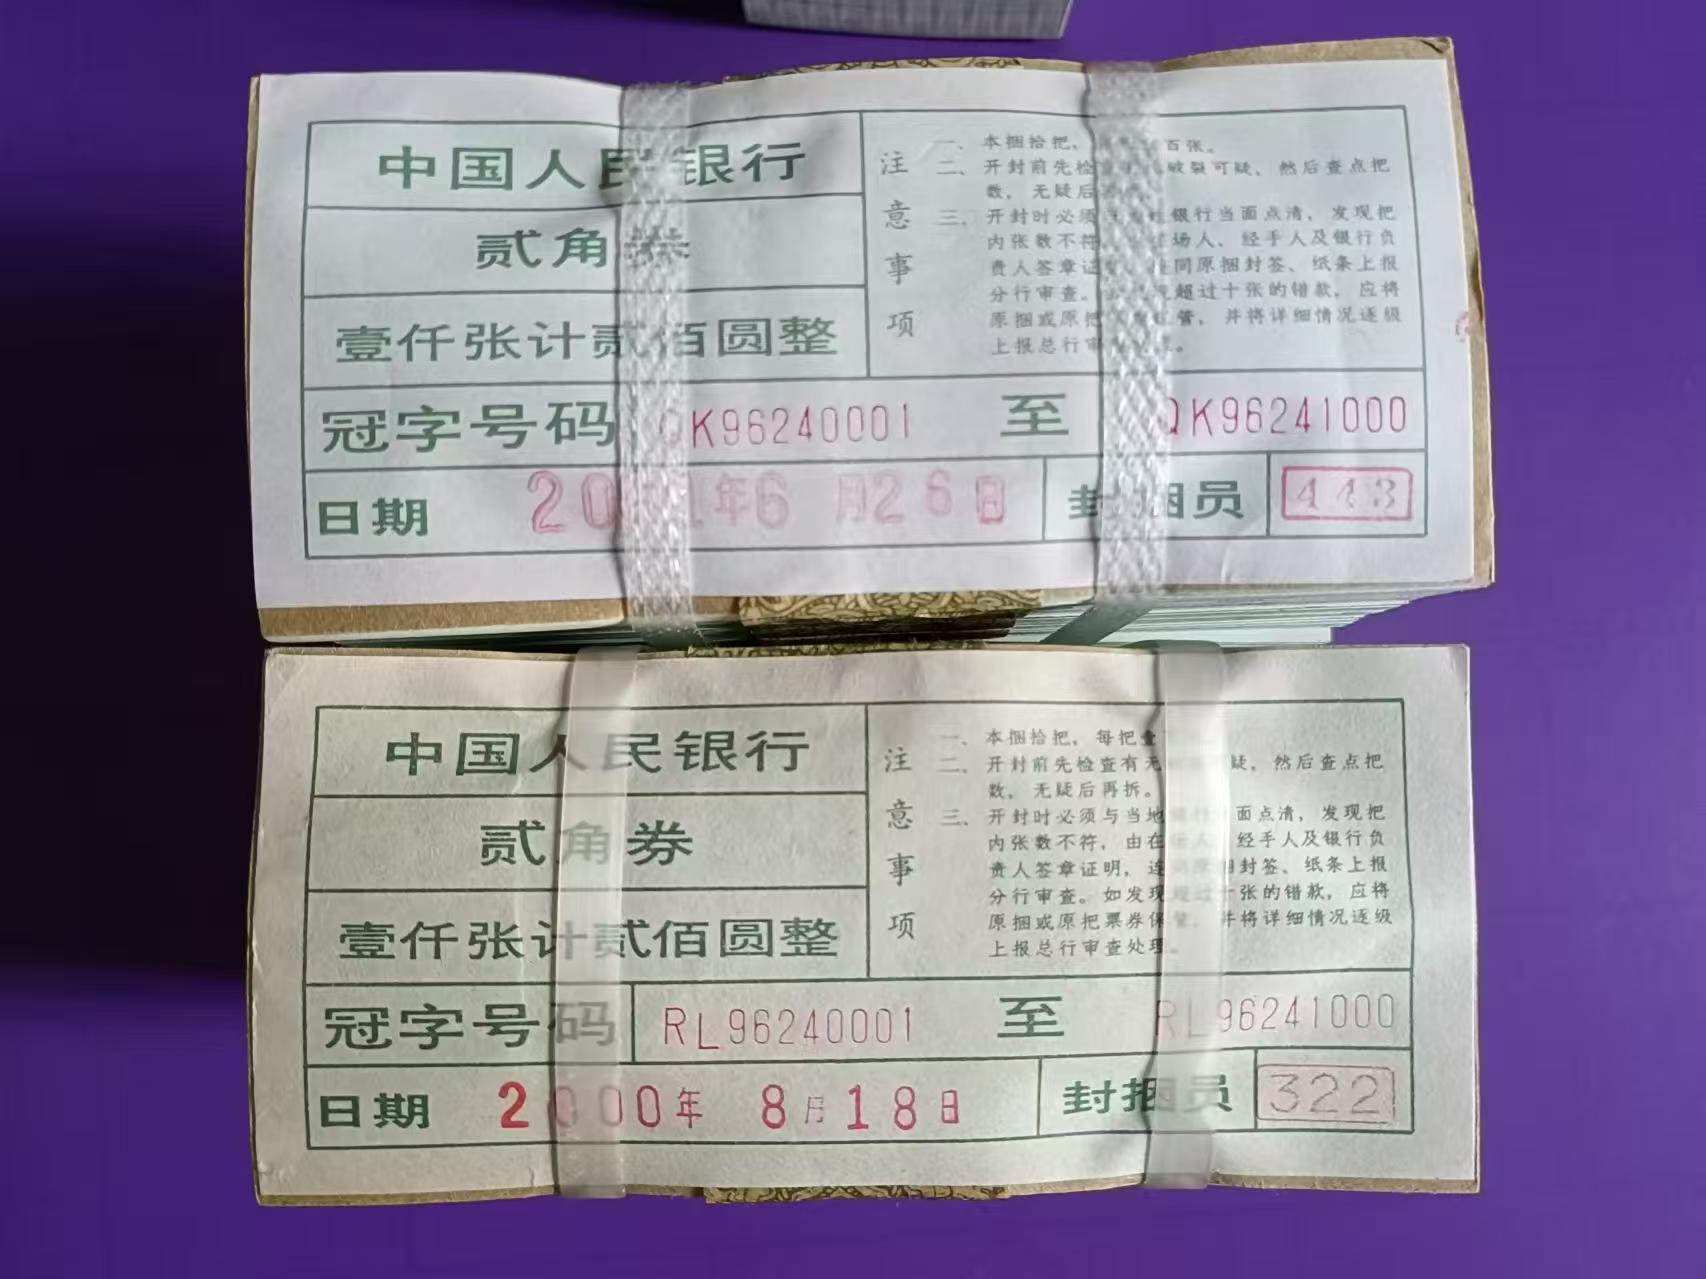 中国人民银行
贰角券
壹仟张计贰佰圆整
注意事项
一、本捆拾把，百张。
二、开封前先检破裂可疑，然后查点把
数，无疑后
三、开封时必须银行当面点清，发现把
内张数不符场人、经手人及银行负
责人签章证同原捆封签、纸条上报
分行审查。超过十张的错款，应将
原捆或原把管，并将详细情况逐级
上报总行审。
冠字号码 QK96240001 至 QK96241000
日期 20 1年6月26日 封捆员 443
中国人民银行
贰角券
壹仟张计贰佰圆整
注意事项
一、本捆拾把，每把壹
二、开封前先检查有无疑，然后查点把
数，无疑后再拆。
三、开封时必须与当地银行当面点清，发现把
内张数不符，由在场人、经手人及银行负
责人签章证明，连同原捆封签、纸条上报
分行审查。如发现超过十张的错款，应将
原捆或原把票券保管，并将详细情况逐级
上报总行审查处理。
冠字号码 RL96240001 至 RL96241000
日期 2000年8月18日 封捆员 322